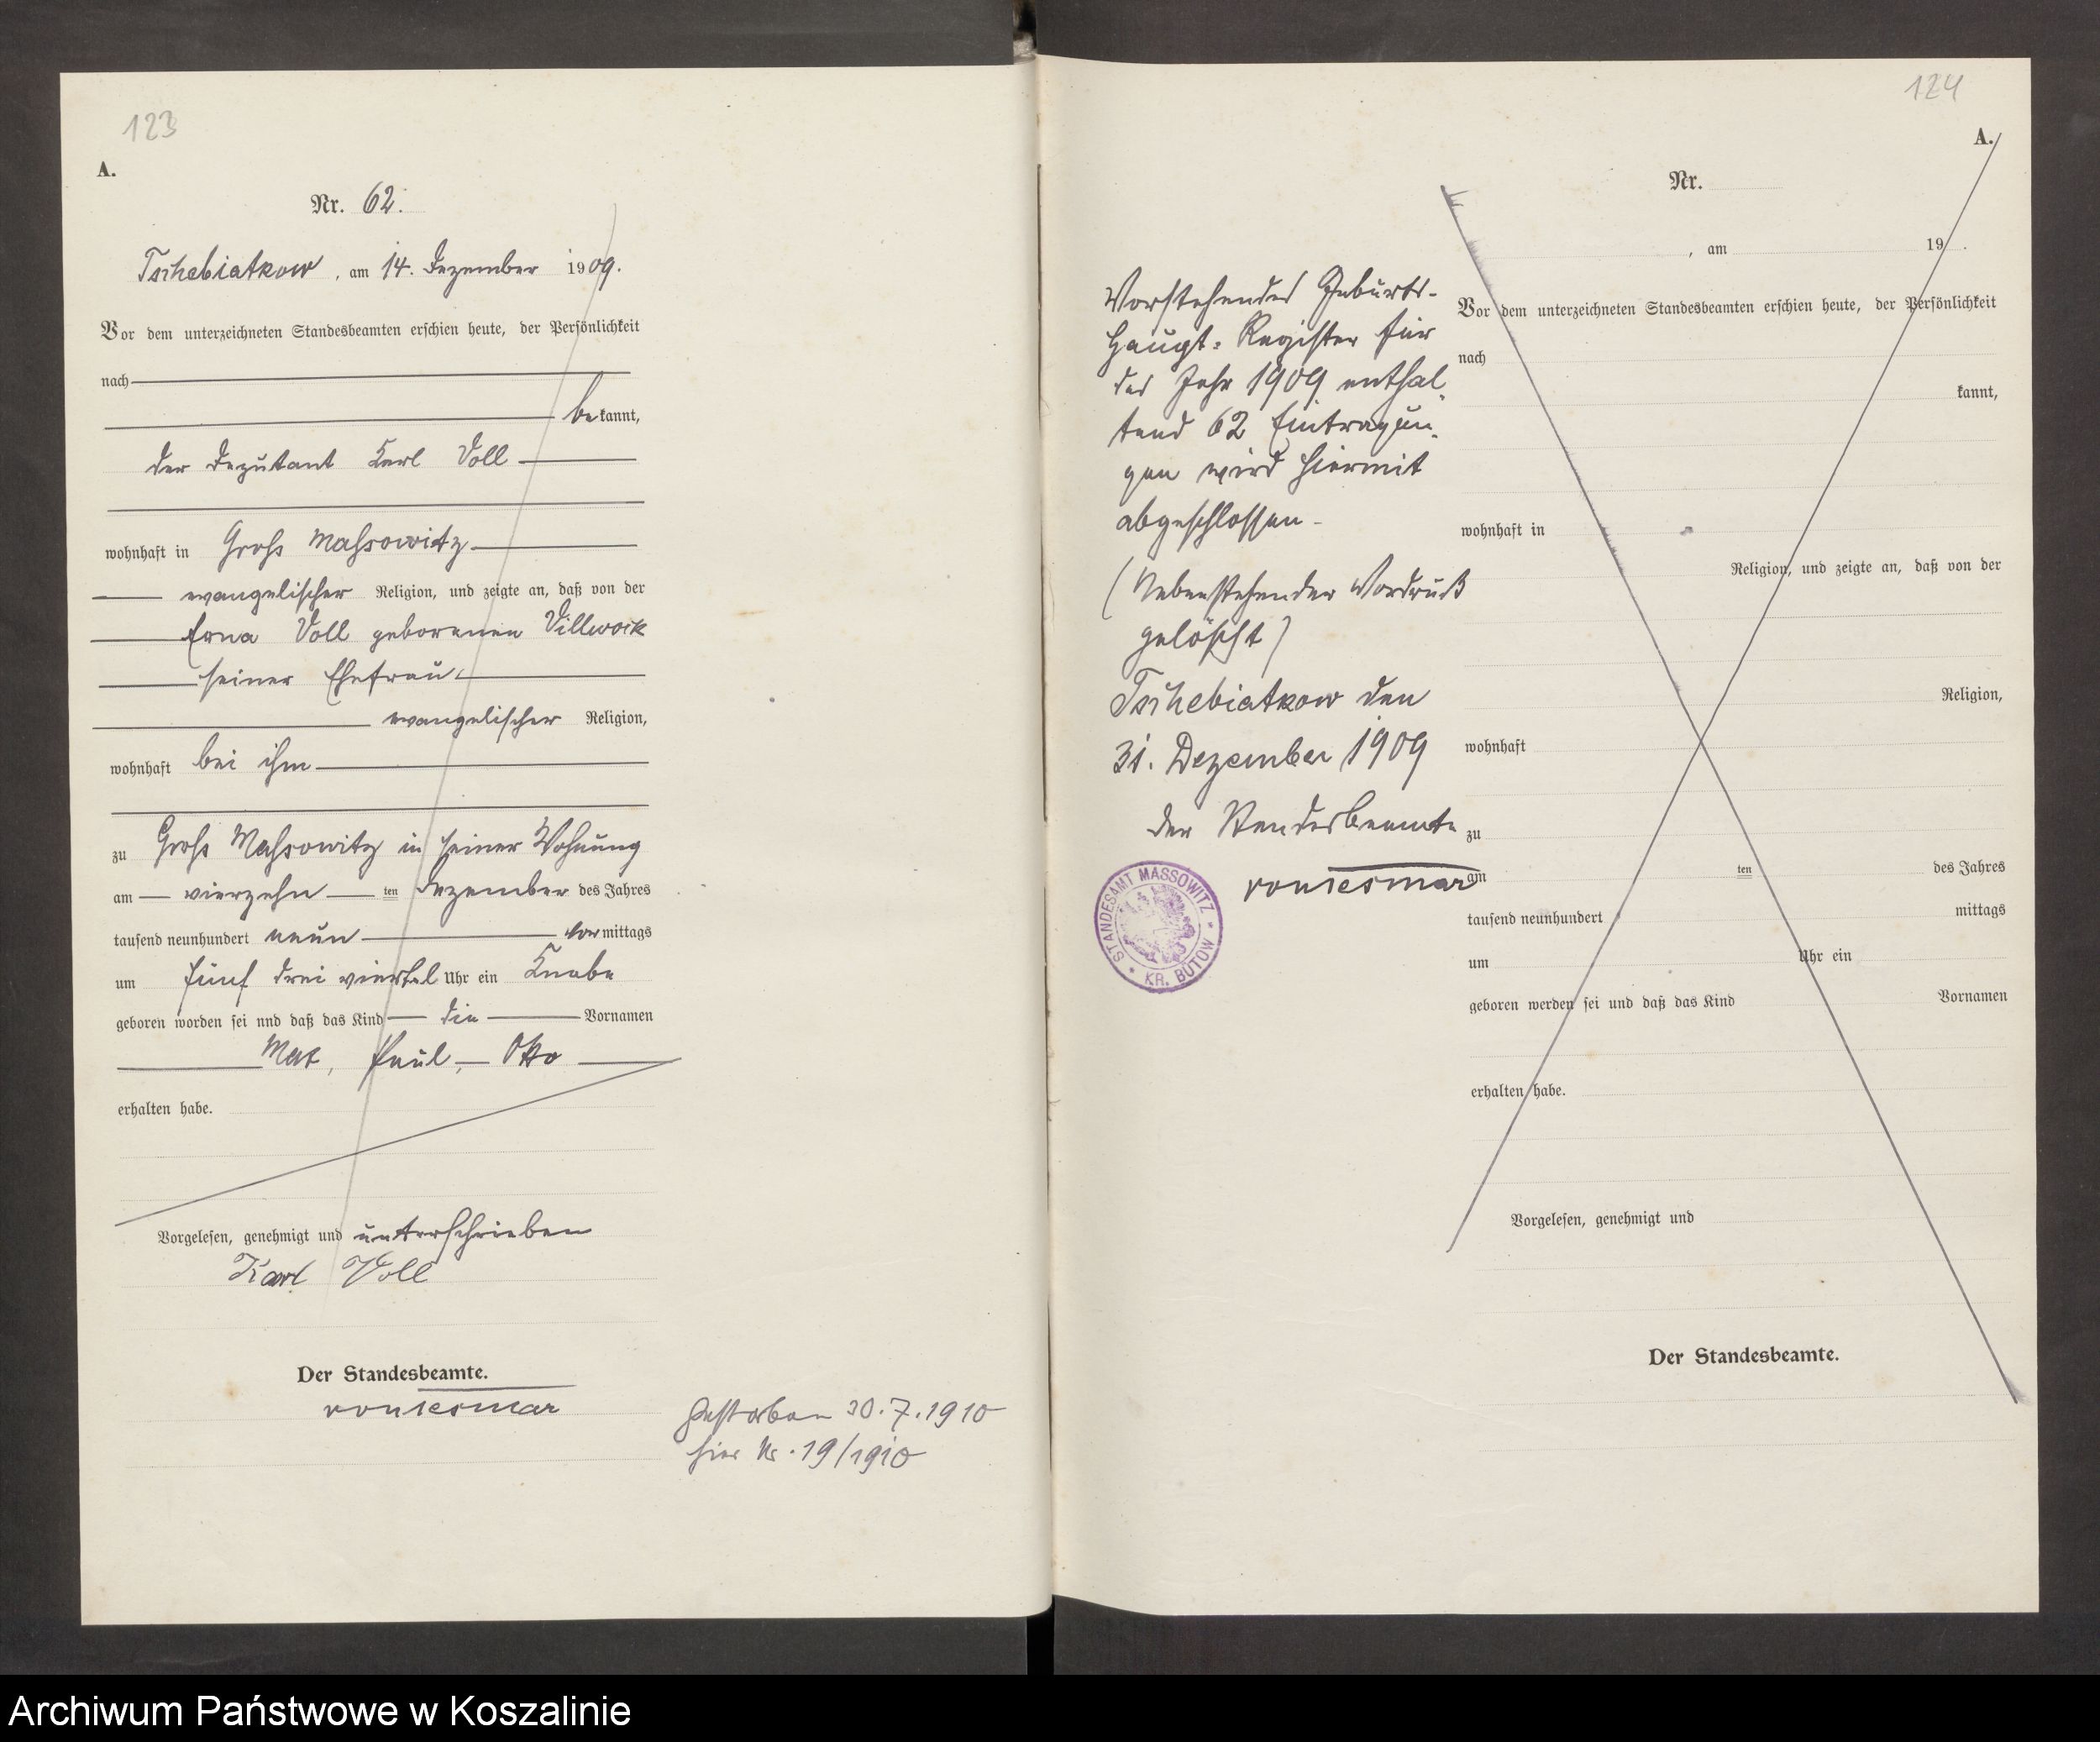 123
A.
Nr. 62.
Tschebiatkow, am 14. Dezember 1909.
Vor dem unterzeichneten Standesbeamten erschien heute, der Persönlichkeit
nach
bekannt,
der Deputant Karl Voll
wohnhaft in Groß Massowitz
evangelischer Religion, und zeigte an, daß von der
Erna Voll geborenen Villwock
seiner Ehefrau
evangelischer Religion,
wohnhaft bei ihm
zu Groß Massowitz in seiner Wohnung
am vierzehn ten Dezember des Jahres
tausend neunhundert neun vormittags
um fünf drei viertel Uhr ein Knabe
geboren worden sei nnd daß das Kind die Vornamen
Max, Paul, Otto
erhalten habe.
Vorgelesen, genehmigt und unterschrieben
Karl Voll
Der Standesbeamte.
Gestorben 30.7.1910
hier Nr. 19/1910
124
A.
Vorstehendes Geburts-
Haupt-Register für
das Jahr 1909 enthal-
tend 62 Eintragun-
gen wird hiermit
abgeschlossen
(Nebenstehender Vordruck
gelöscht)
Tschebiatkow den
31. Dezember 1909
Der Standesbeamte
STANDESAMT MASSOWITZ
* KR. BÜTOW *
Nr.
, am 19 .
Vor dem unterzeichneten Standesbeamten erschien heute, der Persönlichkeit
nach
kannt,
wohnhaft in
Religion, und zeigte an, daß von der
Religion,
wohnhaft
zu
am ten des Jahres
tausend neunhundert mittags
um Uhr ein
geboren werden sei und daß das Kind Vornamen
erhalten habe.
Vorgelesen, genehmigt und
Der Standesbeamte.
Archiwum Państwowe w Koszalinie